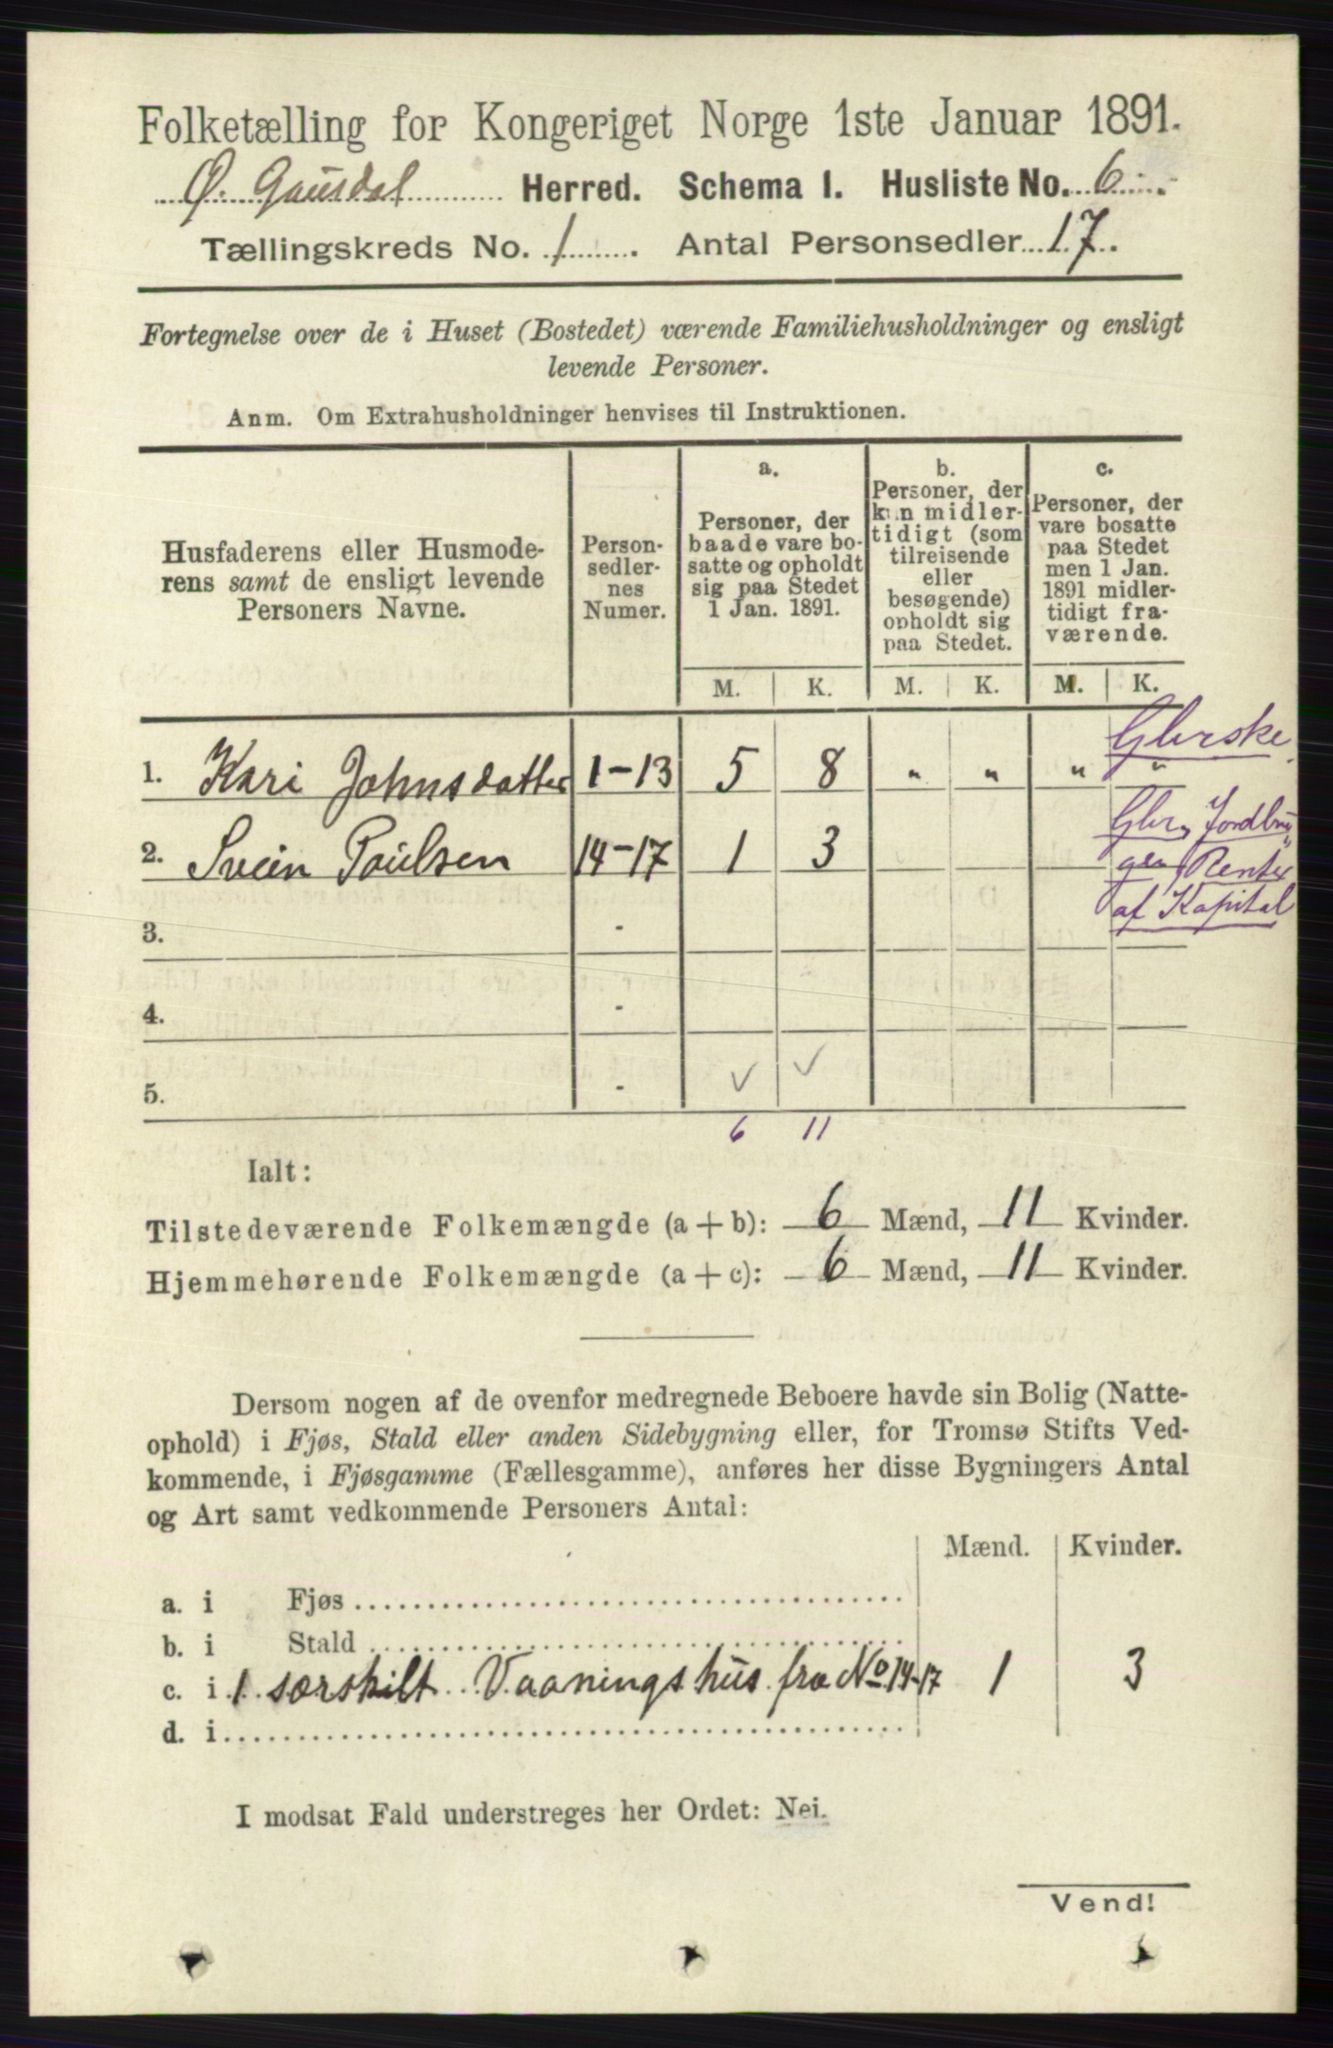 Folketælling for Kongeriget Norge 1ste Januar 1891.
Ø. Gausdal Herred. Schema I. Husliste No. 6.
Tællingskreds No. 1. Antal Personsedler 17.
Fortegnelse over de i Huset (Bostedet) værende Familiehusholdninger og ensligt
levende Personer.
Anm. Om Extrahusholdninger henvises til Instruktionen.
Husfaderens eller Husmode-
rens samt de ensligt levende
Personers Navne.
Person-
sedler-
nes
Numer.
a.
Personer, der
baade vare bo-
satte og opholdt
sig paa Stedet
1 Jan. 1891.
b.
Personer, der
kun midler-
tidigt (som
tilreisende
eller
besøgende)
opholdt sig
paa Stedet.
c.
Personer, der
vare bosatte
paa Stedet
men 1 Jan.
1891 midler-
tidigt fra-
værende.
M. K. M. K. M. K.
Gbrske
1. Kari Johnsdatter 1-13 5 8 " " " "
2. Svein Paulsen 14-17 1 3
Gbr, Jordbru
gen, Renter
af Kapital
3. -
4. -
5. - ✓ ✓
6 11
Ialt:
Tilstedeværende Folkemængde (a + b): 6 Mænd, 11 Kvinder.
Hjemmehørende Folkemængde (a + c): 6 Mænd, 11 Kvinder.
Dersom nogen af de ovenfor medregnede Beboere havde sin Bolig (Natte-
ophold) i Fjøs, Stald eller anden Sidebygning eller, for Tromsø Stifts Ved-
kommende, i Fjøsgamme (Fællesgamme), anføres her disse Bygningers Antal
og Art samt vedkommende Personers Antal:
Mænd. Kvinder.
a. i Fjøs
b. i Stald
c. i 1 særskilt Vaaningshus fra No 14-17 1 3
d. i
I modsat Fald understreges her Ordet: Nei.
Vend!